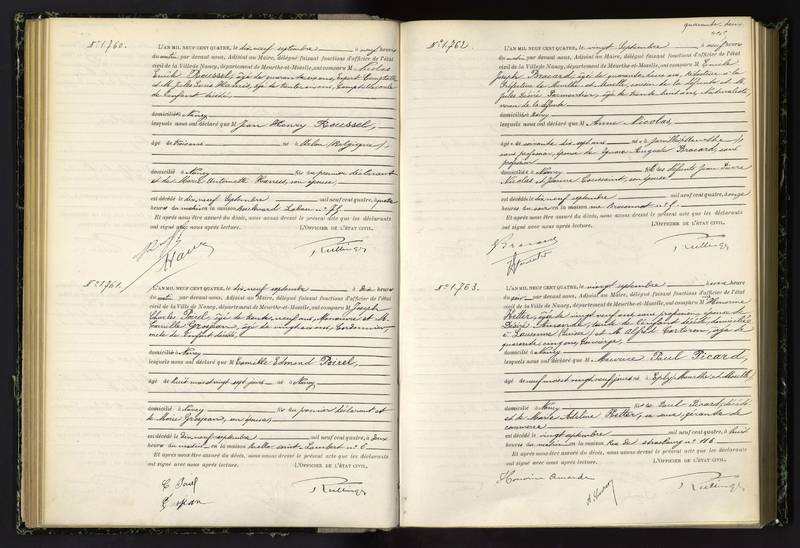 N° 1.760.
L'AN MIL NEUF CENT QUATRE, le dix neuf septembre à neuf heures
du matin par devant nous, Adjoint au Maire, délégué faisant fonctions d'officier de l'état
civil de la Ville de Nancy, département de Meurthe-et-Moselle, ont comparu M. Nicolas
Emile Roussel, âgé de quarante ans, Expert Comptable
et M. Jules Louis Hanus, âgé de trente ans, Comptable, oncle
de l'enfant décédé,
domiciliés à Nancy
lesquels nous ont déclaré que M Jean Henry Roussel,
âgé de trois ans né à Arlon (Belgique),
domicilié à Nancy fils du premier déclarant
et de Marie Antoinette Hanus, son épouse,
est décédé le dix neuf septembre mil neuf cent quatre, à quatre
heures du matin en la maison Boulevard Lobau n° 75
Et après nous être assuré du décès, nous avons dressé le présent acte que les déclarants
ont signé avec nous après lecture. L'OFFICIER DE L'ÉTAT CIVIL,
N° 1.761.
L'AN MIL NEUF CENT QUATRE, le dix neuf septembre à deux heures
du par devant nous, Adjoint au Maire, délégué faisant fonctions d'officier de l'état
civil de la Ville de Nancy, département de Meurthe-et-Moselle, ont comparu M. Joseph
Charles Poirel, âgé de trente neuf ans, Manoeuvre et M.
Camille Grosjean, âgé de vingt huit ans, Cordonnier,
oncle de l'enfant décédé,
domiciliés à Nancy
lesquels nous ont déclaré que M Camille Edmond Poirel,
âgé de huit mois vingt sept jours né à Nancy
domicilié à Nancy fils du premier déclarant et
de Marie Grosjean, son épouse,
est décédé le dix neuf septembre mil neuf cent quatre, à deux
heures du matin en la maison ruelle saint Lambert n° 6
Et après nous être assuré du décès, nous avons dressé le présent acte que les déclarants
ont signé avec nous après lecture. L'OFFICIER DE L'ÉTAT CIVIL,
quarante deux
N° 1.762
L'AN MIL NEUF CENT QUATRE, le vingt septembre à neuf heures
du matin par devant nous, Adjoint au Maire, délégué faisant fonctions d'officier de l'état
civil de la Ville de Nancy, département de Meurthe-et-Moselle, ont comparu M. Emile
Joseph Brocard, âgé de quarante deux ans, à la
Préfecture de Meurthe et Moselle, de la défunte et M.
Jules Parmentier, âgé de trente huit ans, Naturaliste,
voisin de la défunte
domiciliés à Nancy
lesquels nous ont déclaré que M Anne Nicolas,
âgée de soixante dix sept ans née à
sans profession, épouse de Ignace Auguste Brocard, sans
profession
domiciliée à Nancy fille des défunts Jean Pierre
Nicolas et Jeanne Toussaint, son épouse
est décédée le dix neuf septembre mil neuf cent quatre, à onze
heures du soir en la maison rue Braconnot n°
Et après nous être assuré du décès, nous avons dressé le présent acte que les déclarants
ont signé avec nous après lecture. L'OFFICIER DE L'ÉTAT CIVIL,
N° 1.763.
L'AN MIL NEUF CENT QUATRE, le vingt septembre heure
du soir par devant nous, Adjoint au Maire, délégué faisant fonctions d'officier de l'état
civil de la Ville de Nancy, département de Meurthe-et-Moselle, ont comparu M Honorine
Retter, âgée de vingt neuf ans, sans profession, épouse de
Désiré Amarde, tante de l'enfant décédé, domiciliée
à Lausanne (Suisse) et M. Alfred Carteron, âgé de
quarante cinq ans, Concierge,
domicilié à Nancy
lesquels nous ont déclaré que M Maurice Paul Picard,
âgé de neuf mois vingt neuf jours né à (Meurthe et Moselle)
domicilié à Nancy fils de Paul Picard, décédé
et de Marie Adeline Retter, sa veuve, gérante de
commerce
est décédé le vingt septembre mil neuf cent quatre, à huit
heures du matin en la maison rue de Strasbourg n° 116
Et après nous être assuré du décès, nous avons dressé le présent acte que les déclarants
ont signé avec nous après lecture. L'OFFICIER DE L'ÉTAT CIVIL,
Honorine Amarde